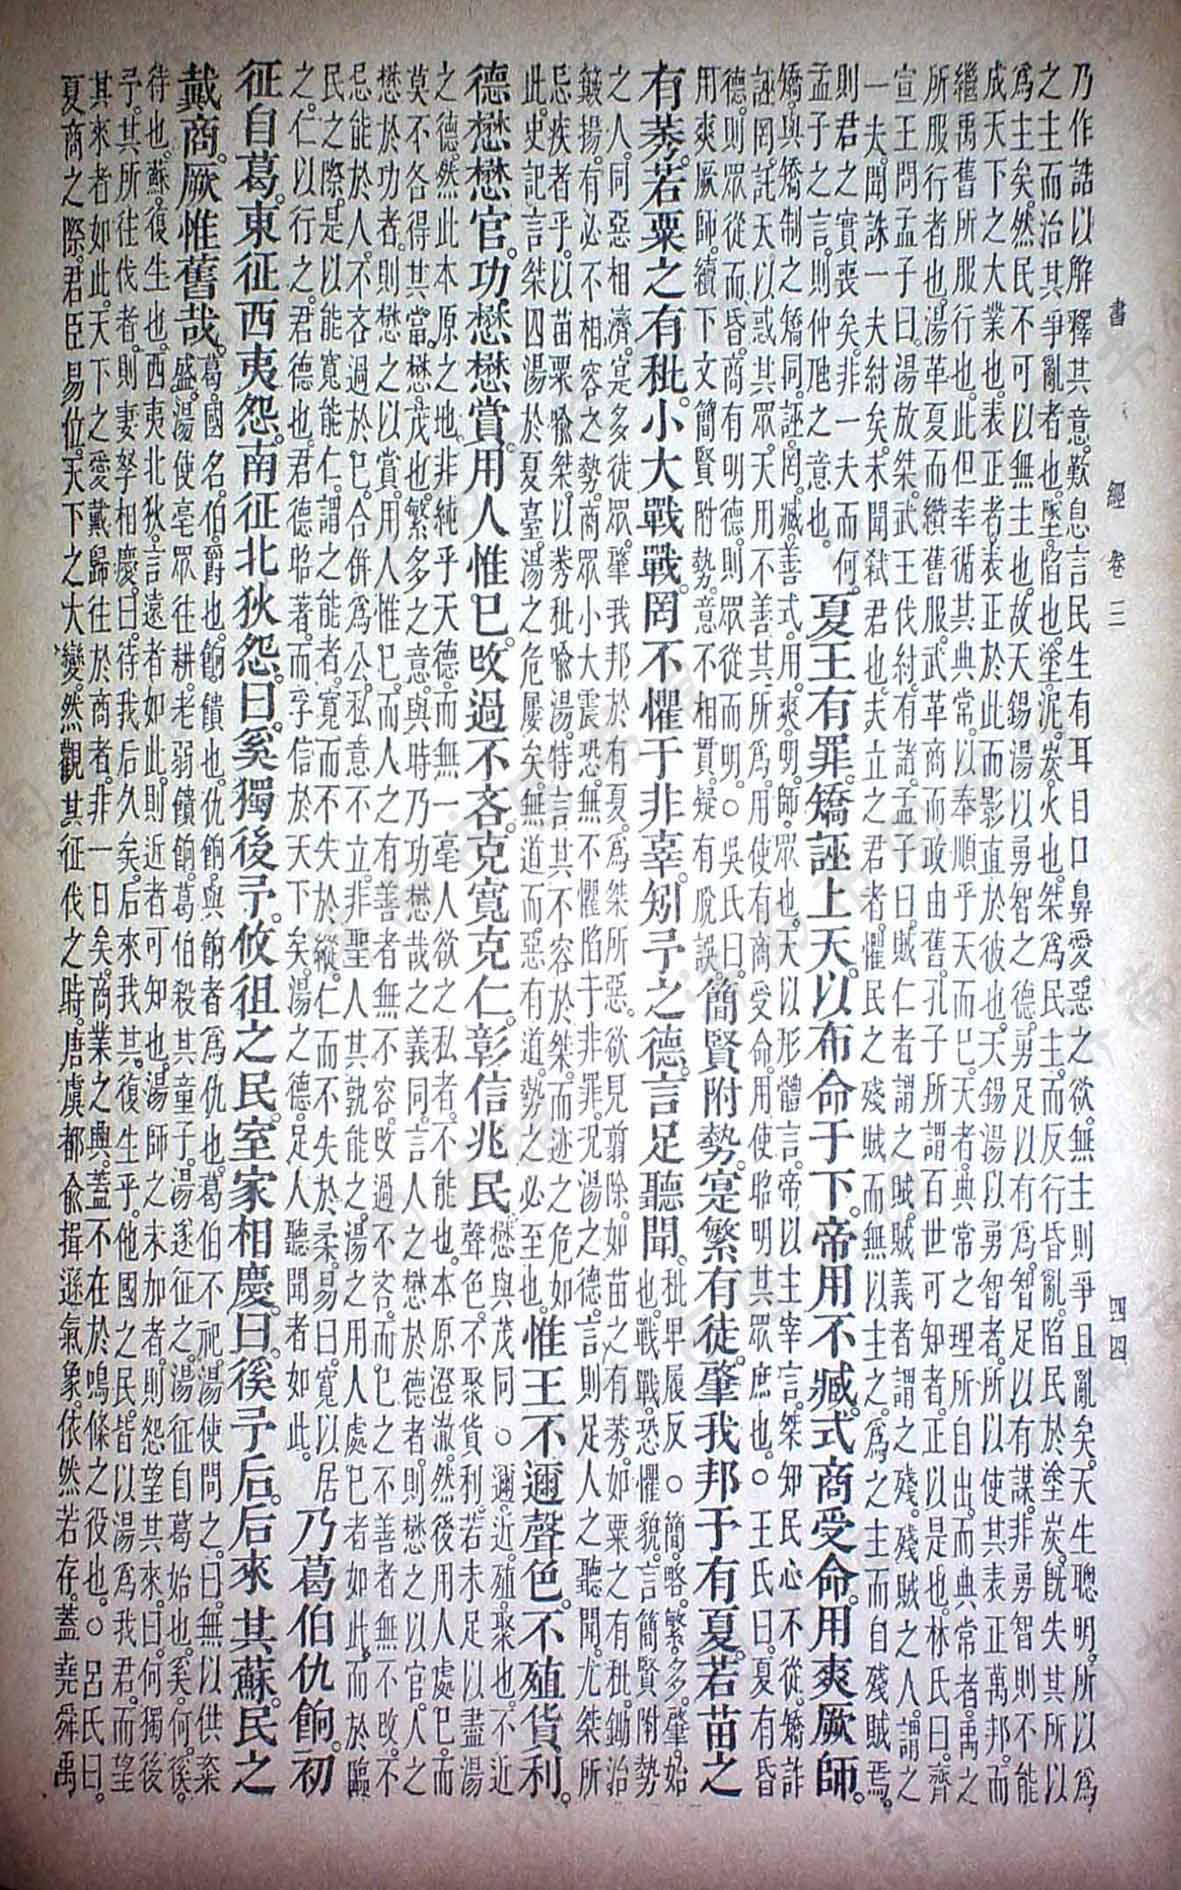 書經 卷三 四四
乃作誥以解釋其意。歎息言民生有耳目口鼻愛惡之欲。無主則爭且亂矣。天生聰明。所以爲
之主而治其爭亂者也。墜。陷也。塗。泥。炭。火也。桀爲民主。而反行昏亂。陷民於塗炭。既失其所以
爲主矣。然民不可以無主也。故天錫湯以勇智之德。勇足以有爲。智足以有謀。非勇智則不能
成天下之大業也。表正者。表正於此而影直於彼也。天錫湯以勇智者。所以使其表正萬邦。而
繼禹舊所服行也。此但率循其典常。以奉順乎天而已。天者。典常之理所自出。而典常者。禹之
所服行者也。湯革夏而纘舊服。武革商而政由舊。孔子所謂百世可知者。正以是也。林氏曰。齊
宣王問孟子曰。湯放桀。武王伐紂。有諸。孟子曰。賊仁者謂之賊。賊義者謂之殘。殘賊之人。謂之
一夫。聞誅一夫紂矣。未聞弒君也。夫立之君者。懼民之殘賊而無以主之。爲之主而自殘賊焉。
則君之實喪矣。非一夫而何。
孟子之言。則仲虺之意也。
夏王有罪。矯誣上天。以布命于下。帝用不臧。式商受命。用爽厥師。
矯。與矯制之矯同。誣。罔。臧。善。式。用。爽。明。師。眾也。天以形體言。帝以主宰言。桀知民心不從。矯詐
誣罔。託天以惑其眾。天用不善其所爲。用使有商受命。用使昭明其眾庶也。○王氏曰。夏有昏
德。則眾從而昏。商有明德。則眾從而明。○吳氏曰。
用爽厥師。續下文簡賢附勢。意不相貫。疑有脫誤。
簡賢附勢。寔繁有徒。肇我邦于有夏。若苗之
有莠。若粟之有秕。小大戰戰。罔不懼于非辜。矧予之德。言足聽聞。
秕。卑履反。○簡。略。繁。多。肇。始
也。戰戰。恐懼貌。言簡賢附勢
之人。同惡相濟。寔多徒眾。肇我邦於有夏。爲桀所惡。欲見翦除。如苗之有莠。如粟之有秕。鋤治
簸揚。有必不相容之勢。商眾小大震恐。無不懼陷于非罪。況湯之德。言則足人之聽聞。尤桀所
忌疾者乎。以苗粟喻桀。以莠秕喻湯。特言其不容於桀。而迹之危如
此。史記。言桀囚湯於夏臺。湯之危屢矣。無道而惡有道。勢之必至也。
惟王不邇聲色。不殖貨利。
德懋懋官。功懋懋賞。用人惟己。改過不吝。克寬克仁。彰信兆民。
懋與茂同。○邇。近。殖。聚也。不近
聲色。不聚貨利。若未足以盡湯
之德。然此本原之地。非純乎天德。而無一毫人欲之私者。不能也。本原澄澈。然後用人處己。而
莫不各得其當。懋。茂也。繁多之意。與時乃功懋哉之義同。言人之懋於德者。則懋之以官。人之
懋於功者。則懋之以賞。用人惟己。而人之有善者無不容。改過不吝。而己之不善者無不改。不
忌能於人。不吝過於己。合併爲公。私意不立。非聖人其孰能之。湯之用人處己者如此。而於臨
民之際。是以能寬能仁。謂之能者。寬而不失於縱。仁而不失於柔。易曰。寬以居
之。仁以行之。君德也。君德昭著。而孚信於天下矣。湯之德。足人聽聞者如此。
乃葛伯仇餉。初
征自葛。東征西夷怨。南征北狄怨。曰。奚獨後予。攸徂之民。室家相慶。曰。徯予后。后來其蘇。民之
戴商。厥惟舊哉。
葛。國名。伯。爵也。餉。饋也。仇餉。與餉者爲仇也。葛伯不祀。湯使問之。曰。無以供粢
盛。湯使亳眾往耕。老弱饋餉。葛伯殺其童子。湯遂征之。湯征自葛始也。奚。何。徯。
待也。蘇。復生也。西夷北狄。言遠者如此。則近者可知也。湯師之未加者。則怨望其來。曰。何獨後
予。其所往伐者。則妻孥相慶。曰。待我后久矣。后來我其復生乎。他國之民。皆以湯爲我君。而望
其來者如此。天下之愛戴歸往於商者。非一日矣。商業之興。蓋不在於鳴條之役也。○呂氏曰。
夏商之際。君臣易位。天下之大變。然觀其征伐之時。唐虞都俞揖遜氣象。依然若存。蓋堯舜禹